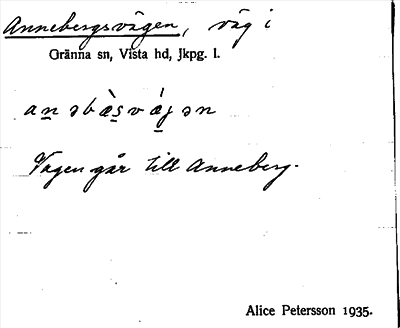 Annebergsvägen, väg i
Gränna sn, Vista hd, Jkpg. l.
an̲əbæ̀s̲vǽ̲jən
Vägen går till Anneberg.
Alice Petersson 1935.